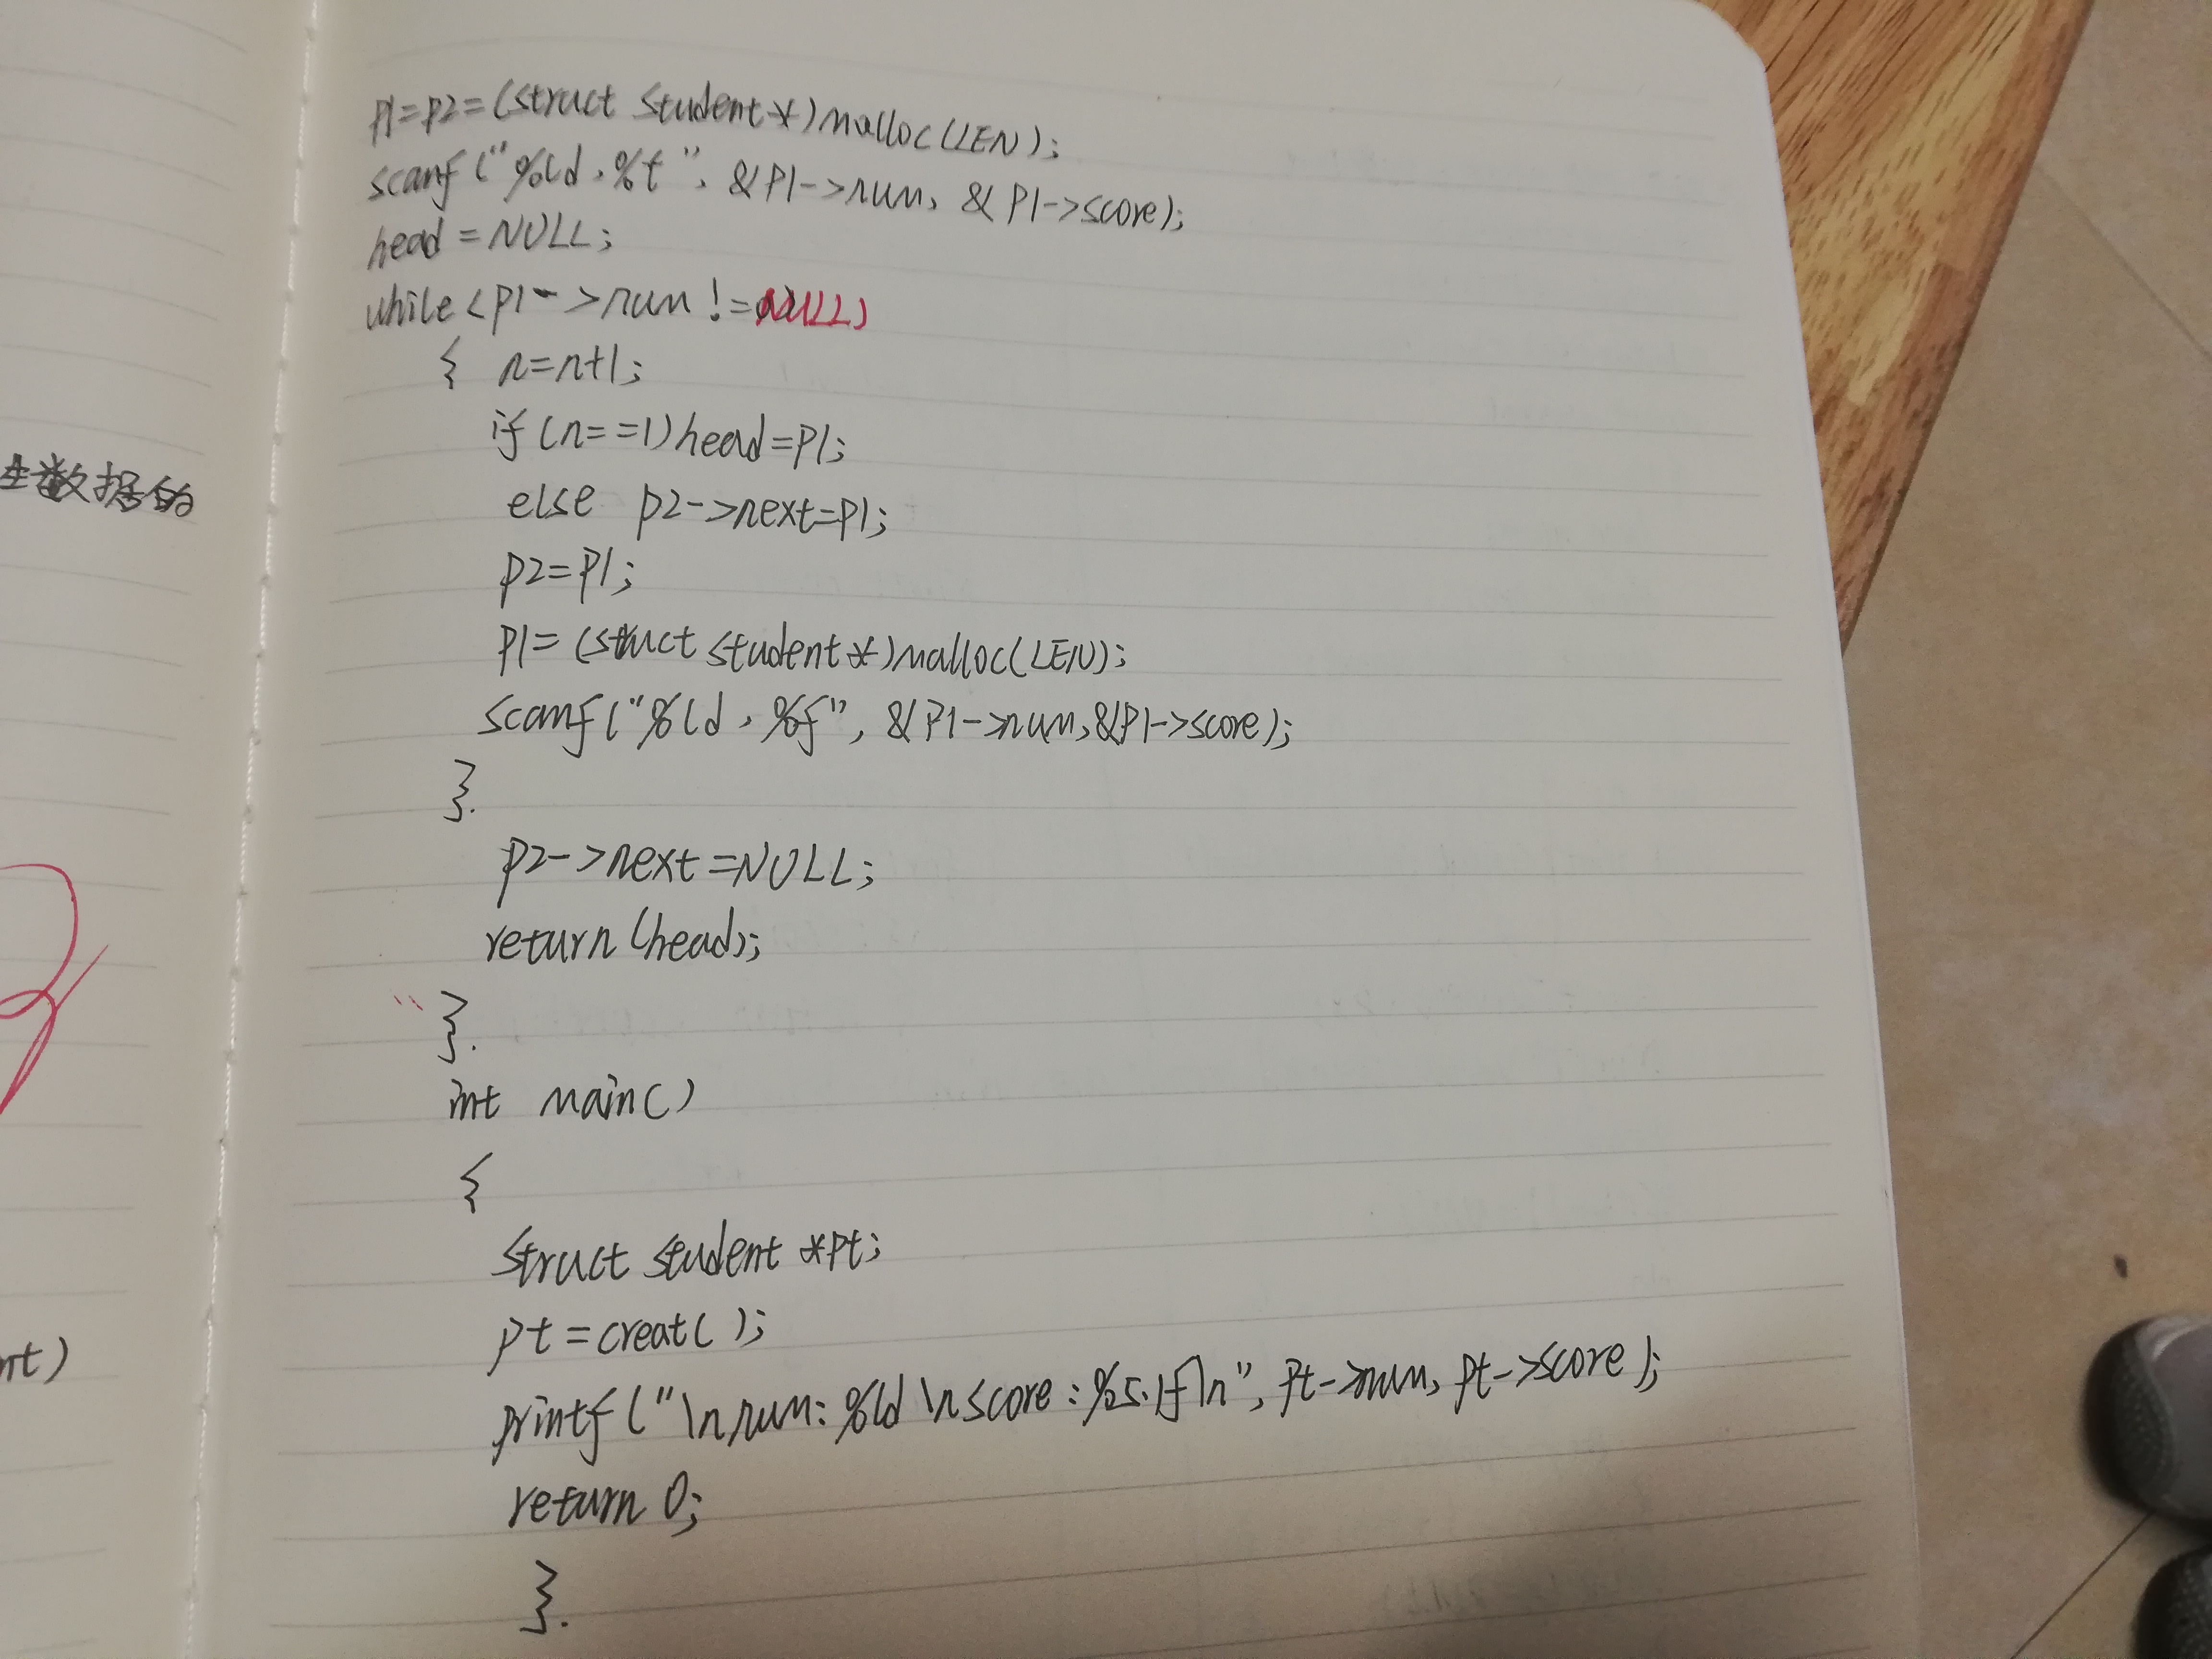 生数据的
nt)
p1=p2=(struct student*)malloc(LEN);
scanf("%ld,%t",&p1->num,&p1->score);
head=NULL;
while(p1->num!=NULL)
{ n=n+1;
if(n==1)head=p1;
else p2->next=p1;
p2=p1;
p1=(struct student*)malloc(LEN);
scanf("%ld,%f",&p1->num,&p1->score);
}.
p2->next=NULL;
return(head);
}.
int main()
{
struct student *pt;
pt=creat();
printf("\nnum:%ld\nscore:%5.1f\n",pt->num,pt->score);
return 0;
}.